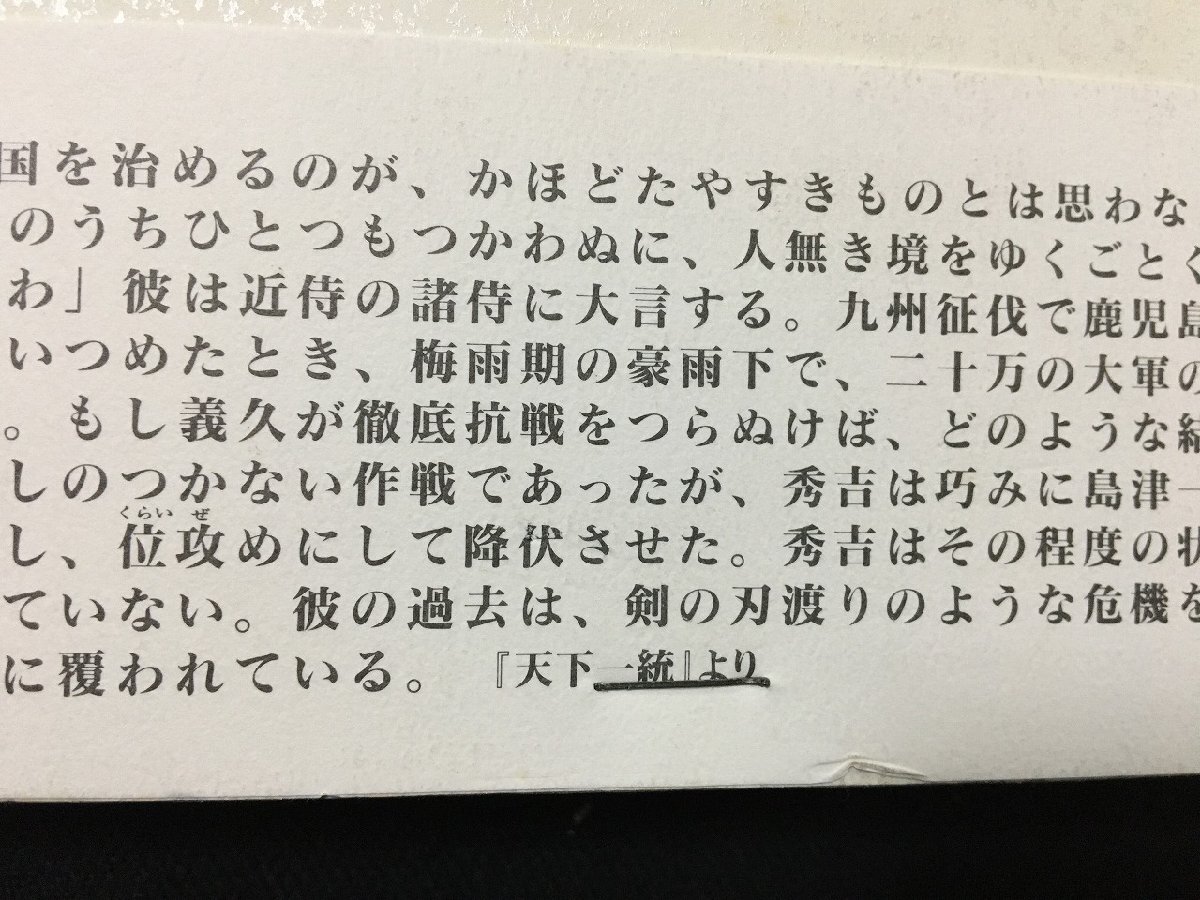 国を治めるのが、かほどたやすきものとは思わな
のうちひとつもつかわぬに、人無き境をゆくごとく
わ」彼は近侍の諸侍に大言する。九州征伐で鹿児島
いつめたとき、梅雨期の豪雨下で、二十万の大軍の
。もし義久が徹底抗戦をつらぬけば、どのような結
しのつかない作戦であったが、秀吉は巧みに島津一
くらい ぜ
し、位攻めにして降伏させた。秀吉はその程度の状
ていない。彼の過去は、剣の刃渡りのような危機を
に覆われている。 『天下一統』より